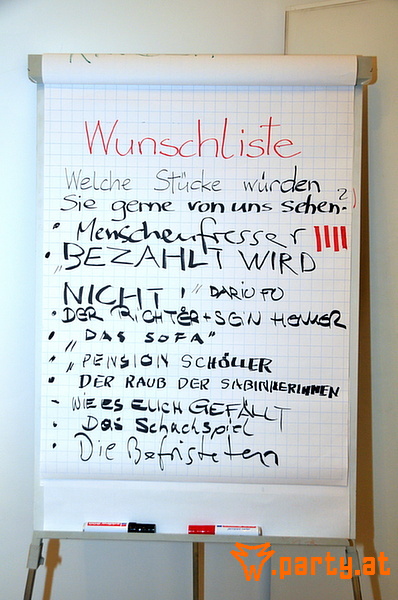 Wunschliste
Welche Stücke würden
Sie gerne von uns sehen?
• Menschenfresser IIII
• „BEZAHLT WIRD
NICHT!" DARIO FO
• DER RICHTER + SEIN HENKER
• „DAS SOFA"
• „PENSION SCHÖLLER
• DER RAUB DER SABINKERINNEN
- WIE ES EUCH GEFÄLLT
• Das Schachspiel
• Die Befristeten
.party.at